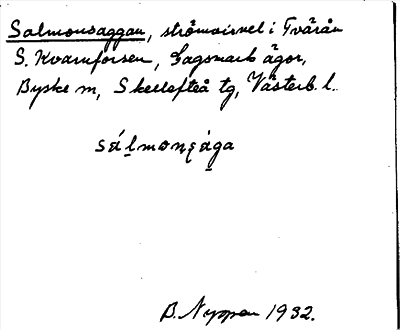 Salmonsaggan, strömvirvel i Tvärån
S. Kvarnforsen, Gagsmark ägor,
Byske m, Skellefteå tg, Västerb. l.
sálmonsága
B. Nyman 1932.